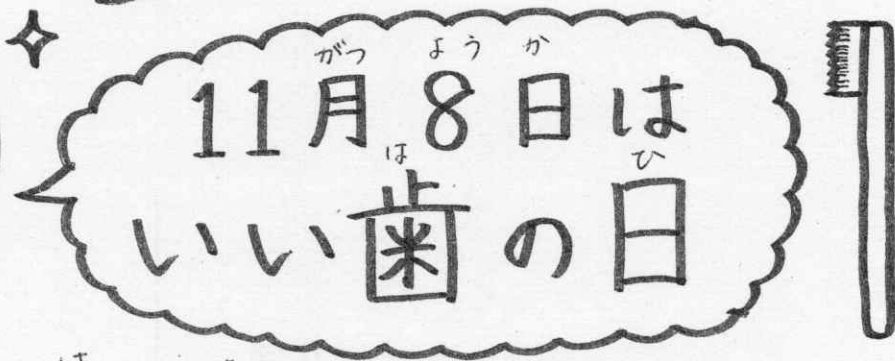 11月8日は
いい歯の日